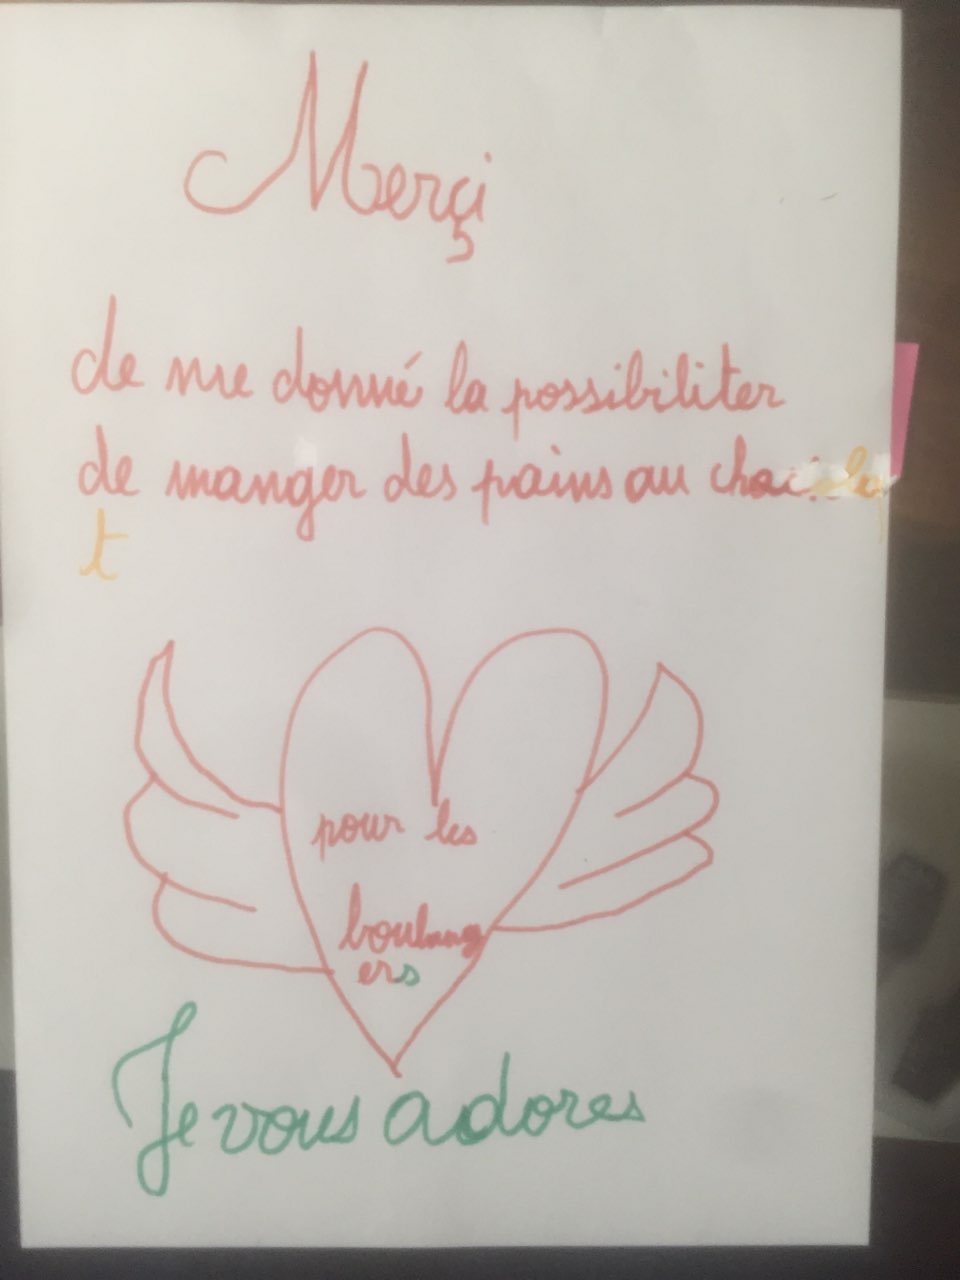 Merçi
de me donné la possibiliter
de manger des pains au chocola
t
pour les
boulang
ers
Je vous adores